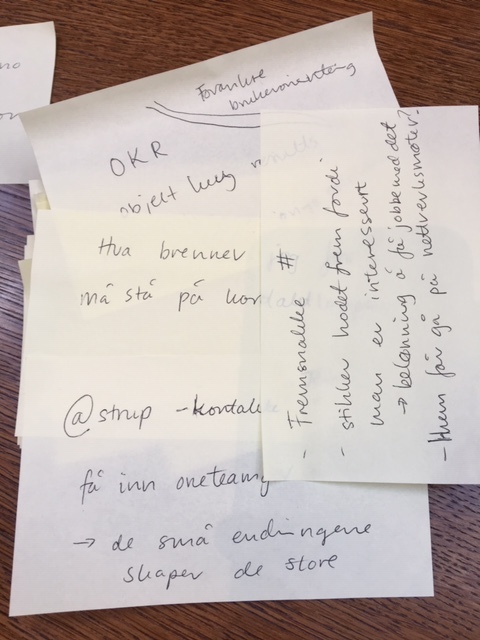 Forankre
brukerorientering
OKR
objekt key results
Hva brenner
må stå på kon
@strup - kontak
få inn oneteam
→ de små endringene
skaper de store
- Fremsnakke #
- stikker hodet frem fordi
man er interessert
→ belønning å få jobbe med det
- Hvem får gå på nettverksmøter?